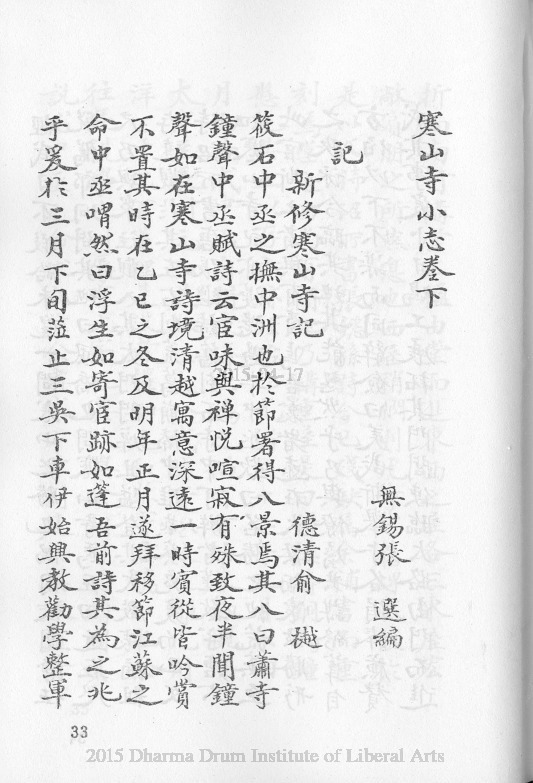 寒山寺小志卷下
無錫張 選編
記
新修寒山寺記
德清俞 樾
筱石中丞之撫中洲也於節署得八景焉其八曰蕭寺
鐘聲中丞賦詩云宦味與禅悦喧寂有殊致夜半聞鐘
聲如在寒山寺詩境清越寓意深遠一時賓從皆吟賞
不置其時在乙巳之冬及明年正月遂拜移節江蘇之
命中丞喟然曰浮生如寄宦跡如蓬吾前詩其為之兆
乎爰於三月下旬蒞止三吳下車伊始興教勸學整軍
33
2015-04-17
2015 Dharma Drum Institute of Liberal Arts